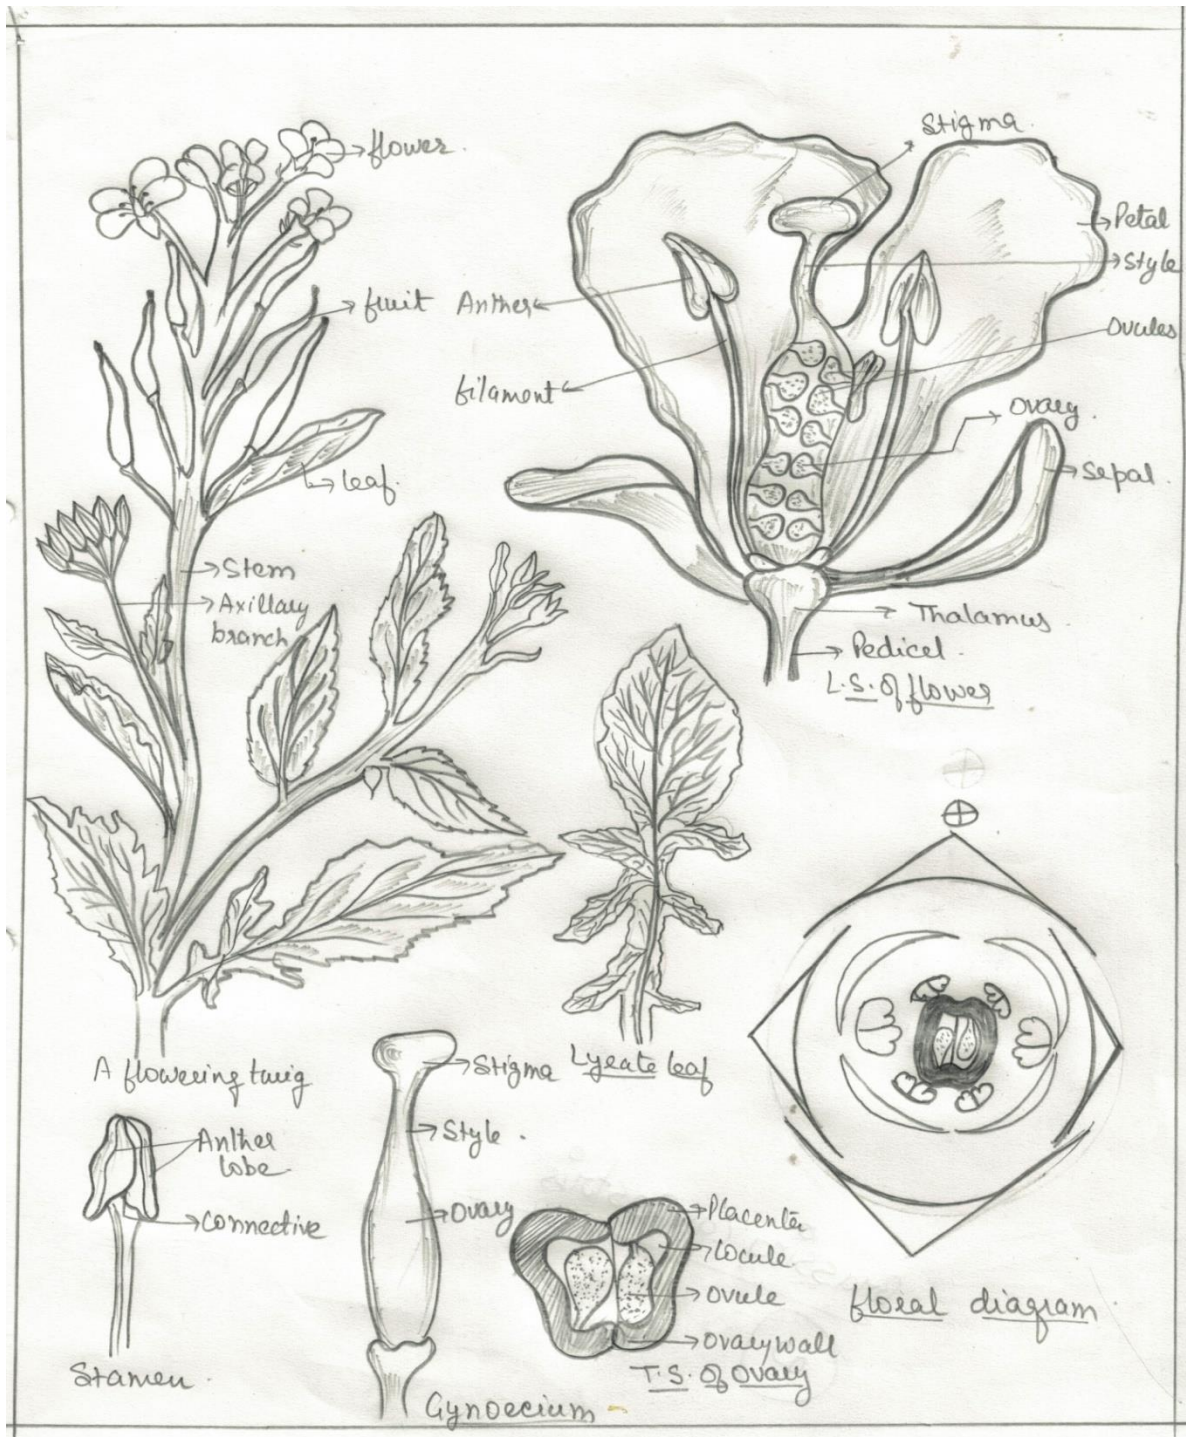 flower
fruit
leaf
Stem
Axillary
branch
A flowering twig
Stigma
Petal
Style
Ovules
Anther
filament
Ovary
Sepal
Thalamus
Pedicel
L.S. of flower
Lyrate leaf
Anther
lobe
Connective
Stamen
Stigma
Style
Ovary
Gynoecium
Placenta
Locule
Ovule
Ovary wall
T.S. of Ovary
floral diagram